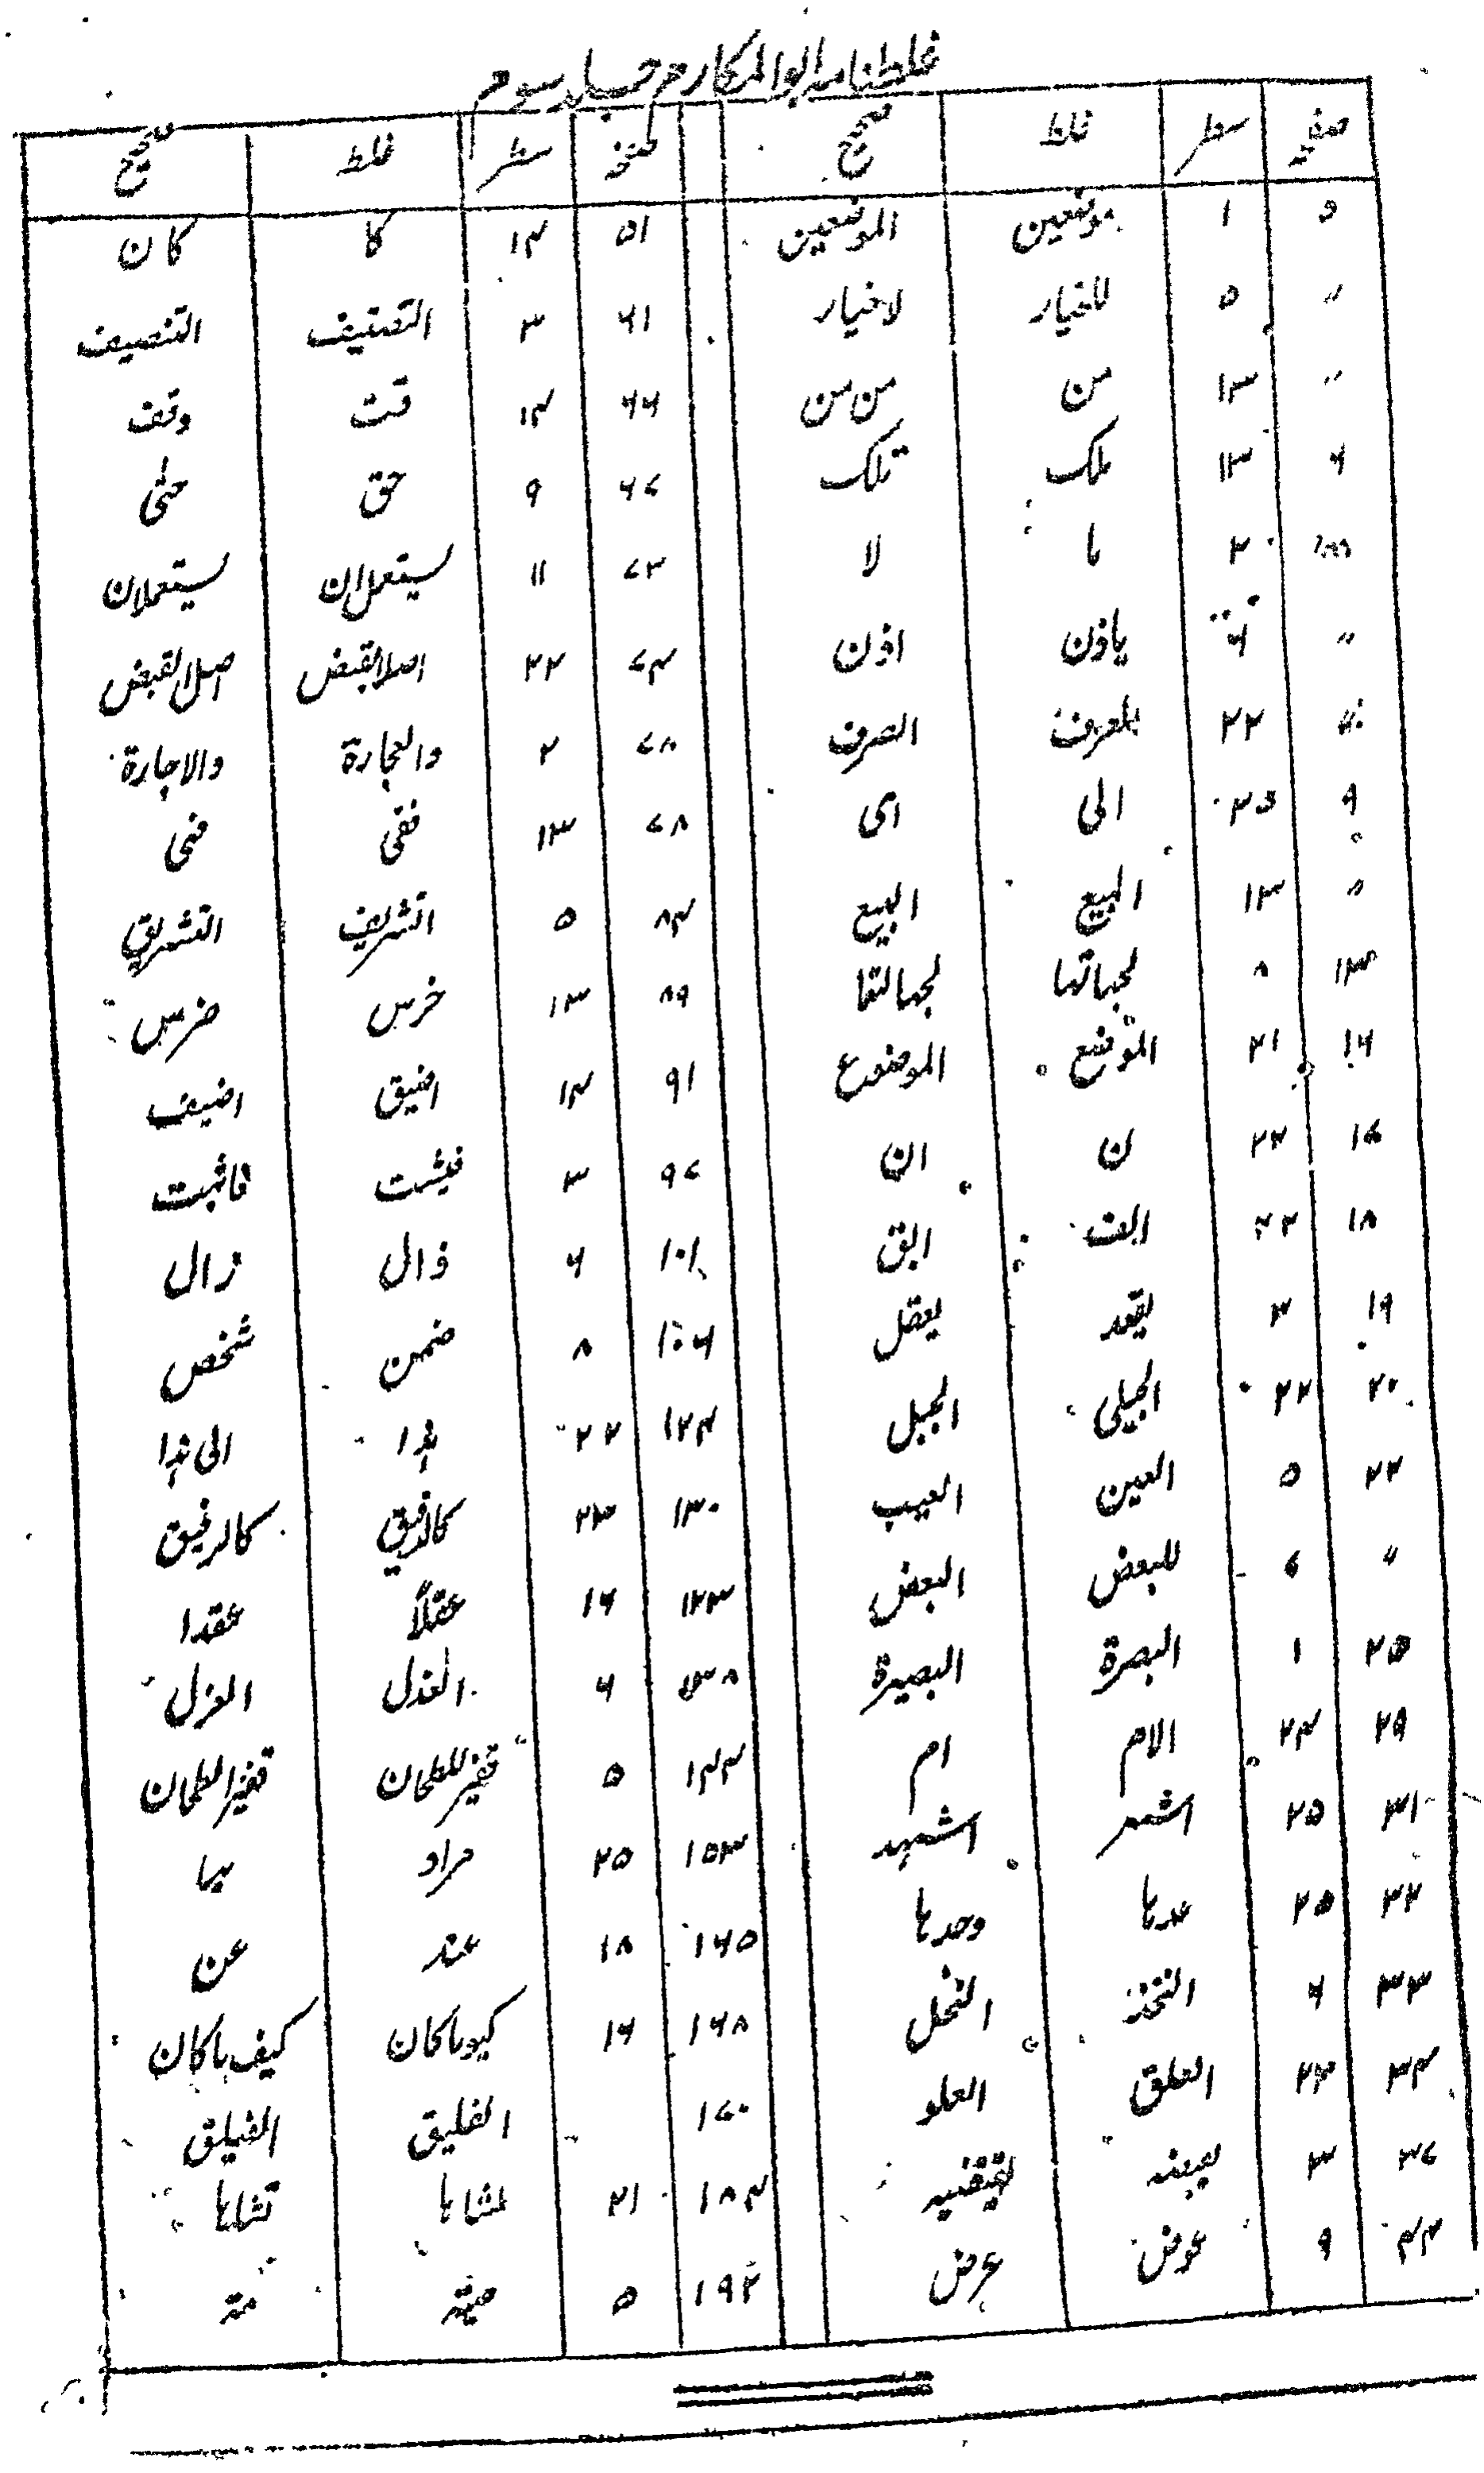 غلطنامہ ابوالمکارم جلد سوم
صفحہ سطر غلط صحیح صفحہ سطر غلط صحیح
۵ ۱ موضعین الموضعین ۵۱ ۱۴ کا کان
〃 ۵ للخیار لاخیار ۶۱ ۳ التصنیف التنصیف
〃 ۱۳ من من من ۶۶ ۱۴ قت وقف
۶ ۱۳ ملک تلک ۶۷ ۹ حق حتی
۲ ما لا ۷۳ ۱۱ لیستعمل ان لیستعملان
〃 ۶ یاذن اذن ۷۴ ۲۲ اصلالقبض اصل القبض
〃 ۲۲ للعرف الصرف ۷۸ ۲ والجارة والاجارة
۹ الی ای ۷۸ ۱۳ ففی فی
〃 ۱۳ البیع البیع ۸۴ ۵ التشریف التشریق
۱۳ ۸ لجہاتہا لجہالتہا ۸۹ ۱۳ خرس ضرس
۱۶ ۲۱ الموضع الموضوع ۹۱ ۱۴ اضیق اضیف
۱۷ ۲۴ ن ان ۹۷ ۳ فیثبت فاثبت
۱۸ ۲۲ ابف ابق ۱۰۱ ۶ ذال زال
۱۹ ۳ یقعد یعقل ۱۰۶ ۸ ضمن شخص
۲۰ ۲۲ الجبلی الجبل ۱۲۴ ۲۲ ہذا الی ہذا
۲۲ ۵ العین العیب ۱۳۰ ۲۳ کالدقیق کالرقیق
〃 ۷ للبعض البعض ۱۳۳ ۱۶ عقلاً عقدا
۲۵ ۱ البصرة البصیرة ۱۳۸ ۶ الغذل الغزل
۲۹ ۲۴ الام ام ۱۴۴ ۵ قفیز للطحان قفیز الطحان
۳۱ ۲۵ اشہر اشہد ۱۵۳ ۲۵ مراد
۳۲ ۲۵ عدہا وحدہا ۱۶۵ ۱۸ عند عن
۳۳ ۶ النخذ النخل ۱۶۸ ۱۶ کیوماکان کیف ماکان
۳۴ ۲۳ العلق العلو ۱۷۰ الفلیق الفیلق
۳۷ ۳ ۱۸۴ ۲۱
۴۴ ۹ عوض عرض ۱۹۲ ۵ میتہ